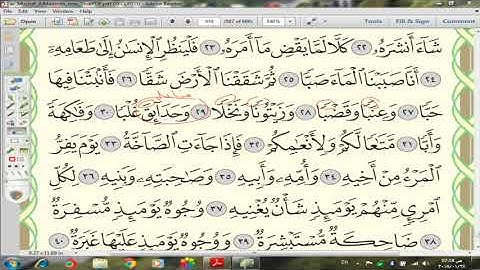 Tools
Fill & Sign
Comment
شَآءَ أَنشَرَهُۥ ٢٢ كَلَّا لَمَّا يَقْضِ مَآ أَمَرَهُۥ ٢٣ فَلْيَنظُرِ ٱلْإِنسَٰنُ إِلَىٰ طَعَامِهِۦٓ
٢٤ أَنَّا صَبَبْنَا ٱلْمَآءَ صَبًّا ٢٥ ثُمَّ شَقَقْنَا ٱلْأَرْضَ شَقًّا ٢٦ فَأَنۢبَتْنَا فِيهَا
حَبًّا ٢٧ وَعِنَبًا وَقَضْبًا ٢٨ وَزَيْتُونًا وَنَخْلًا ٢٩ وَحَدَآئِقَ غُلْبًا ٣٠ وَفَٰكِهَةً
وَأَبًّا ٣١ مَّتَٰعًا لَّكُمْ وَلِأَنْعَٰمِكُمْ ٣٢ فَإِذَا جَآءَتِ ٱلصَّآخَّةُ ٣٣ يَوْمَ يَفِرُّ
ٱلْمَرْءُ مِنْ أَخِيهِ ٣٤ وَأُمِّهِۦ وَأَبِيهِ ٣٥ وَصَٰحِبَتِهِۦ وَبَنِيهِ ٣٦ لِكُلِّ
ٱمْرِئٍ مِّنْهُمْ يَوْمَئِذٍ شَأْنٌ يُغْنِيهِ ٣٧ وُجُوهٌ يَوْمَئِذٍ مُّسْفِرَةٌ
٣٨ ضَاحِكَةٌ مُّسْتَبْشِرَةٌ ٣٩ وَوُجُوهٌ يَوْمَئِذٍ عَلَيْهَا غَبَرَةٌ ٤٠
8.27 x 11.69 in
EN